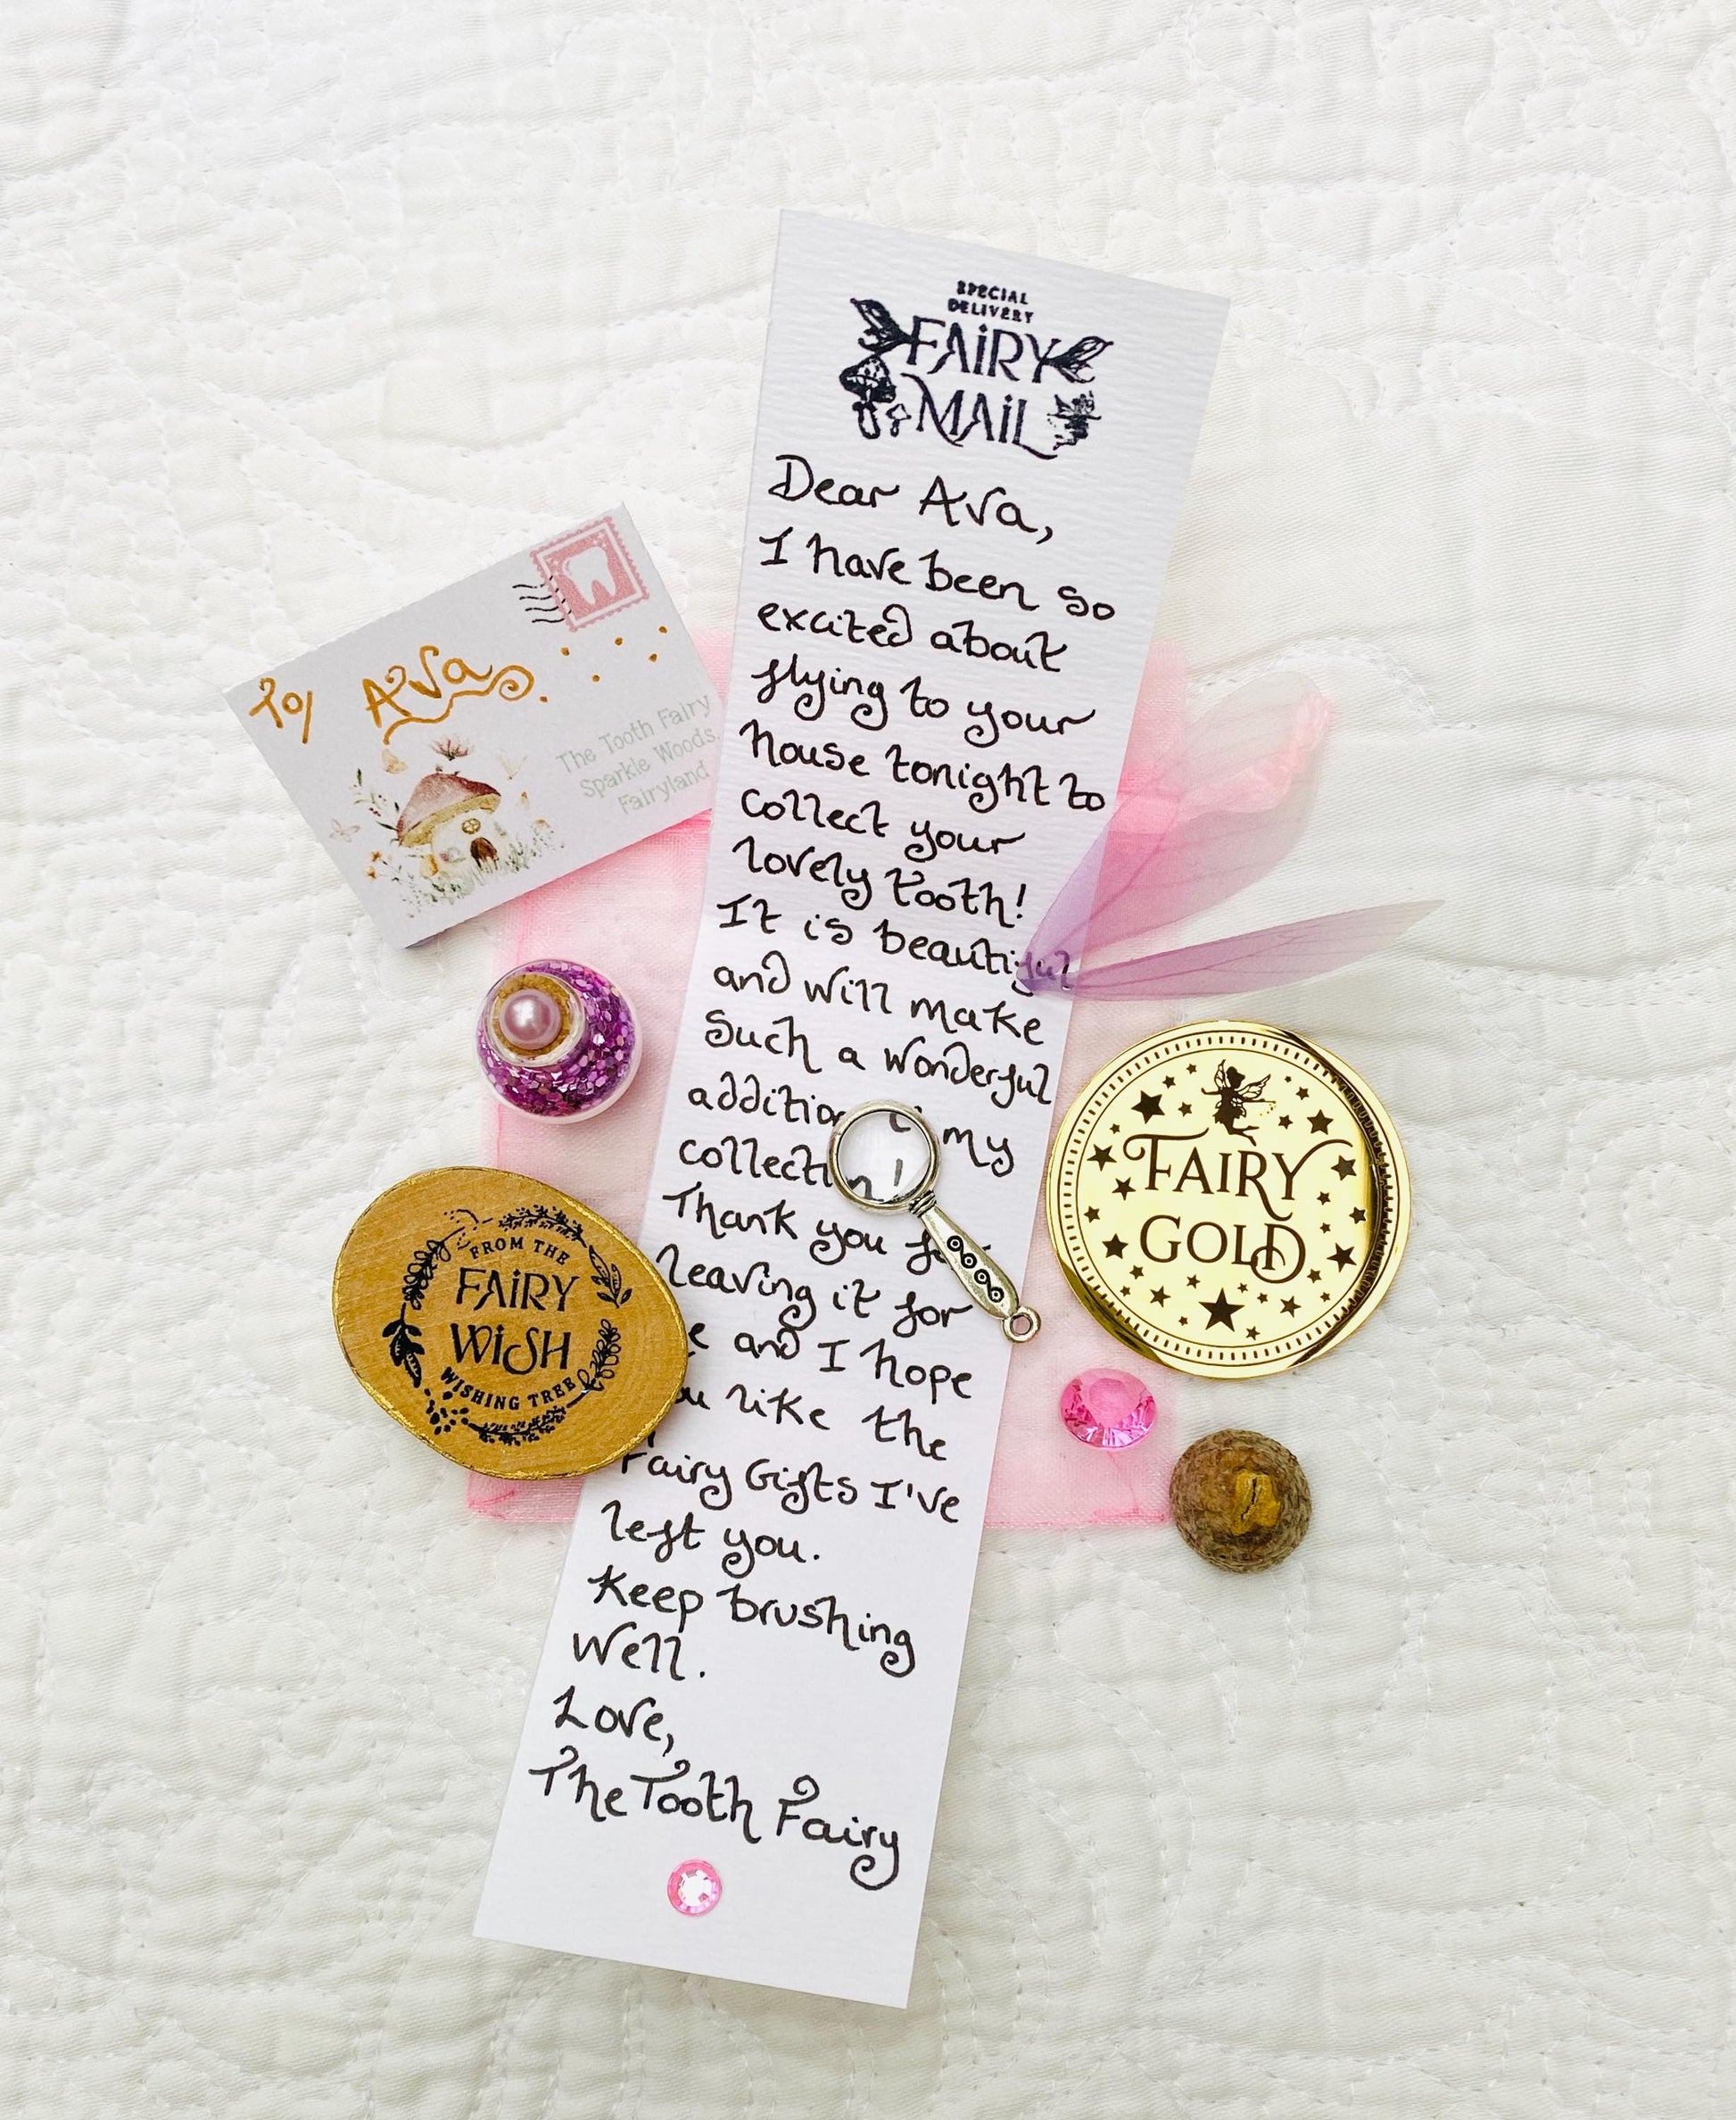 SPECIAL
DELIVERY
FAiRY
MAiL
Dear Ava,
I have been so
excited about
flying to your
house tonight to
collect your
lovely tooth!
It is beautiful
and will make
Such a wonderful
my
Thank you
leaving it for
and I hope
like the
Fairy Gifts I've
left you.
Keep brushing
Well.
Love,
The Tooth Fairy
To/ Ava
The Tooth Fairy
Sparkle Woods,
Fairyland
FROM THE
FAiRY
WiSH
WISHING TREE
FAIRY
GOLD